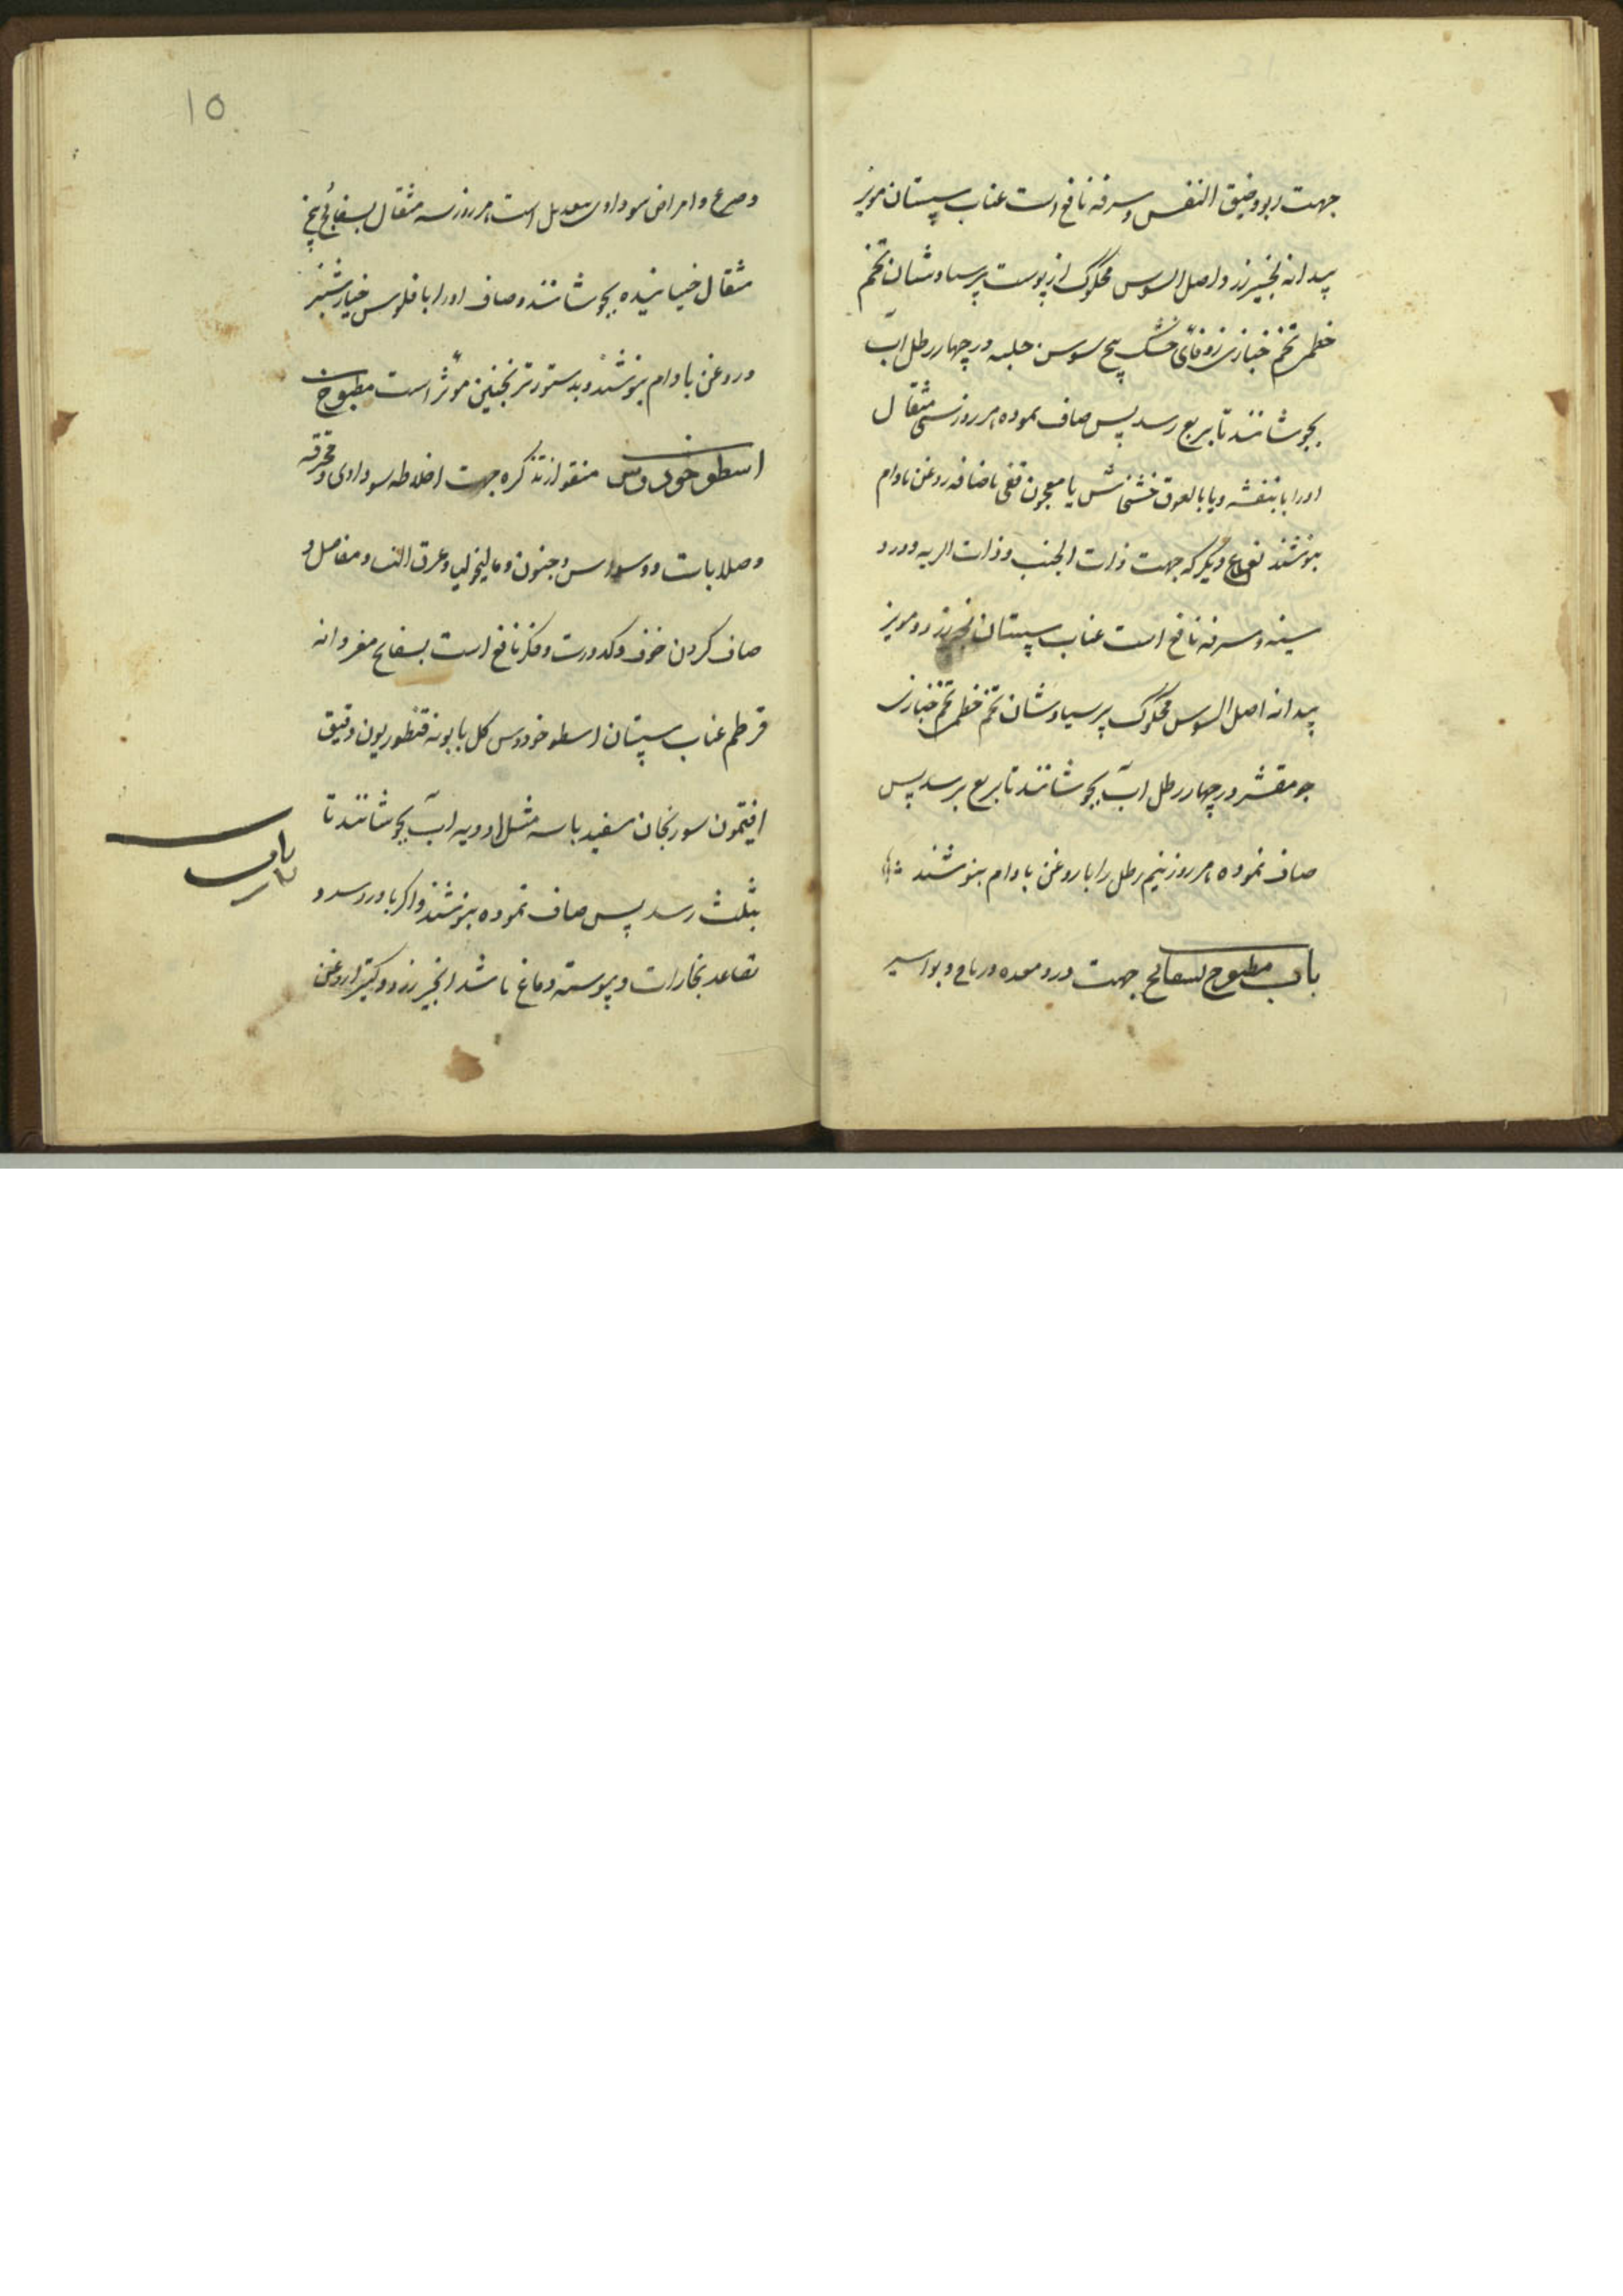 جهت ربو وضیق النفس وسرفه نافع است عناب سپستان مویز
بیدانه انجیر زرد واصل السوس محکوک از پوست پرسیاوشان تخم
خطمی تخم خبازی زوفای خشک بیخ سوسن حلبه در چهار رطل آب
بجوشانند تا بربع رسد پس صاف نموده هر روز سی مثقال
اورا با بنفشه ویا با لعوق خشخاش یا معجون قفی باضافه روغن بادام
بنوشند نوع دیگر که جهت ذات الجنب وذات الریه ودرد
سینه وسرفه نافع است عناب سپستان انجیر زرد ومویز
بیدانه اصل السوس محکوک پرسیاوشان تخم خطمی تخم خبازی
جو مقشر در چهار رطل آب بجوشانند تا بربع برسد پس
صاف نموده هر روز نیم رطل را با روغن بادام بنوشند
باب مطبوخ بسفایج جهت درد معده وریاح وبواسیر
۱۵
وصرع وامراض سوداوی بیعدیل است هر روز سه مثقال بسفایج پنج
مثقال خیسانیده بجوشانند وصاف اورا با فلوس خیارشنبر
وروغن بادام بنوشند وبدستور ترنجبین موثر است مطبوخ
اسطوخودوس منقول از تذکره جهت اخلاطه سوداوی ومحرقه
وصلابات ووسواس وجنون ومالیخولیا وعرق النسا ومفاصل و
صاف کردن خوف وکدورت وفکر نافع است بسفایج مغز دانه
قرطم عناب سپستان اسطوخودوس گل بابونه قنطوریون دقیق
افتیمون سورنجان سفید با سه مثل ادویه آب بجوشانند تا
بثلث رسد پس صاف نموده بنوشند واگر با درد سر و
تصاعد بخارات ویبوسته دماغ باشد انجیر زرد وکتیرا روغن